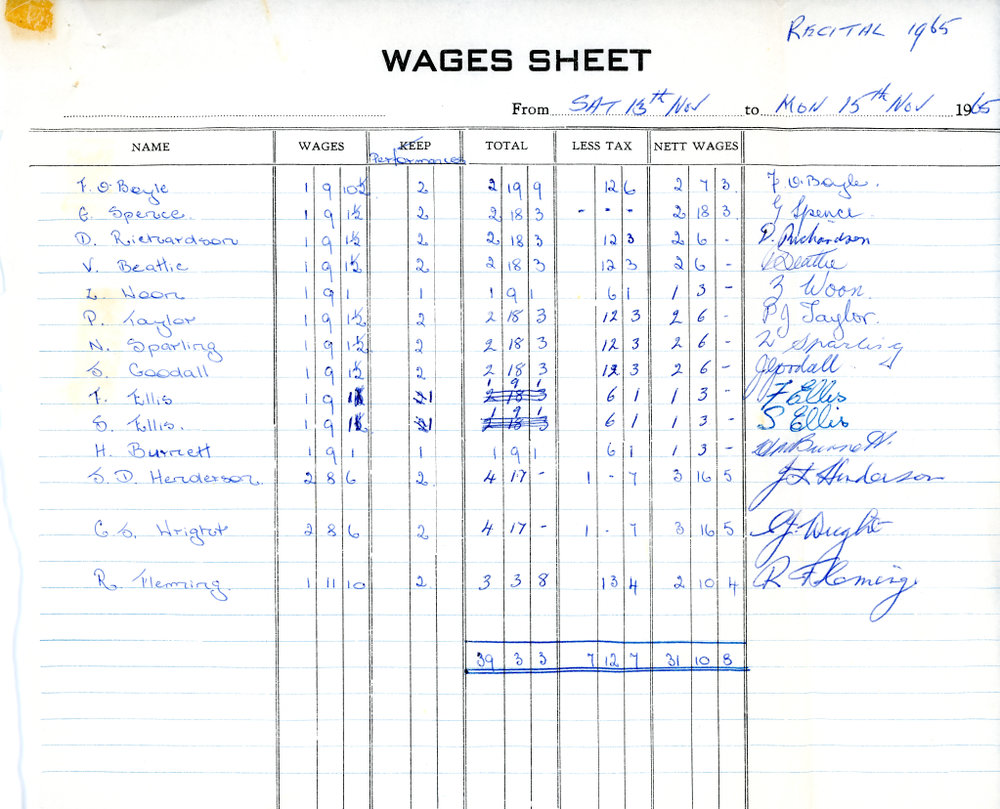 RECITAL 1965
WAGES SHEET
From SAT 13th Nov to MON 15th Nov 1965
NAME WAGES KEEP TOTAL LESS TAX NETT WAGES
Performances
F. O. Boyle 1 9 10½ 2 2 19 9 12 6 2 7 3 F. O. Boyle.
G. Spence. 1 9 1½ 2 2 18 3 - - - 2 18 3 G Spence
D. Richardson 1 9 1½ 2 2 18 3 12 3 2 6 - D. Richardson
V. Beattie 1 9 1½ 2 2 18 3 12 3 2 6 - V Beattie
Z. Woon 1 9 1 1 1 9 1 6 1 1 3 - Z Woon.
P. Taylor 1 9 1½ 2 2 18 3 12 3 2 6 - P J Taylor.
N. Sparling 1 9 1½ 2 2 18 3 12 3 2 6 - N Sparling
J. Goodall 1 9 1½ 2 2 18 3 12 3 2 6 - J Goodall
F. Ellis 1 9 1 1 1 9 1 6 1 1 3 - F Ellis
S. Ellis. 1 9 1 1 1 9 1 6 1 1 3 - S Ellis
H. Burnett 1 9 1 1 1 9 1 6 1 1 3 - Burnett.
J. D. Henderson. 2 8 6 2 4 17 - 1 - 7 3 16 5 Henderson
C. J. Wright 2 8 6 2 4 17 - 1 - 7 3 16 5 Wright
R. Fleming. 1 11 10 2 3 3 8 13 4 2 10 4 R Fleming
39 3 3 7 12 7 31 10 8